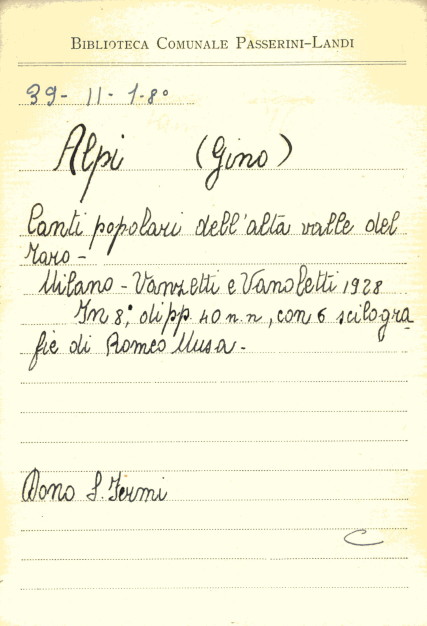 BIBLIOTECA COMUNALE PASSERINI-LANDI
39- II - 1-8º
Alpi (Gino)
Canti popolari dell'alta valle del
Taro -
Milano - Vanzetti e Vanoletti 1928
In 8°, di pp. 40 n. n., con 6 scilogra
fie di Romeo Musa -
Dono S. Fermi
C